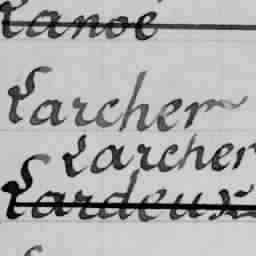 Lanoë
Larcher
Larcher
Lardeux